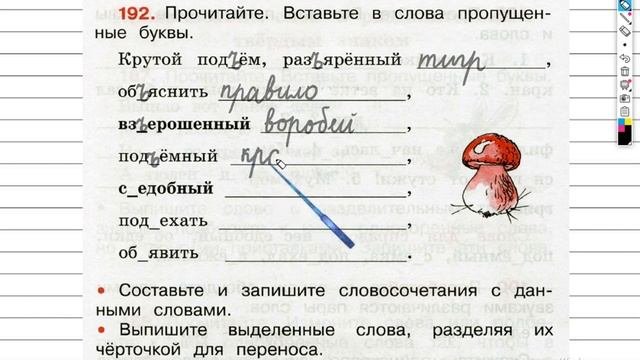 192. Прочитайте. Вставьте в слова пропущен-
ные буквы.
Крутой подъём, разъярённый тигр,
объяснить правило,
взъерошенный воробей,
подъёмный кра,
с_едобный,
под_ехать,
об_явить.
• Составьте и запишите словосочетания с дан-
ными словами.
• Выпишите выделенные слова, разделяя их
чёрточкой для переноса.